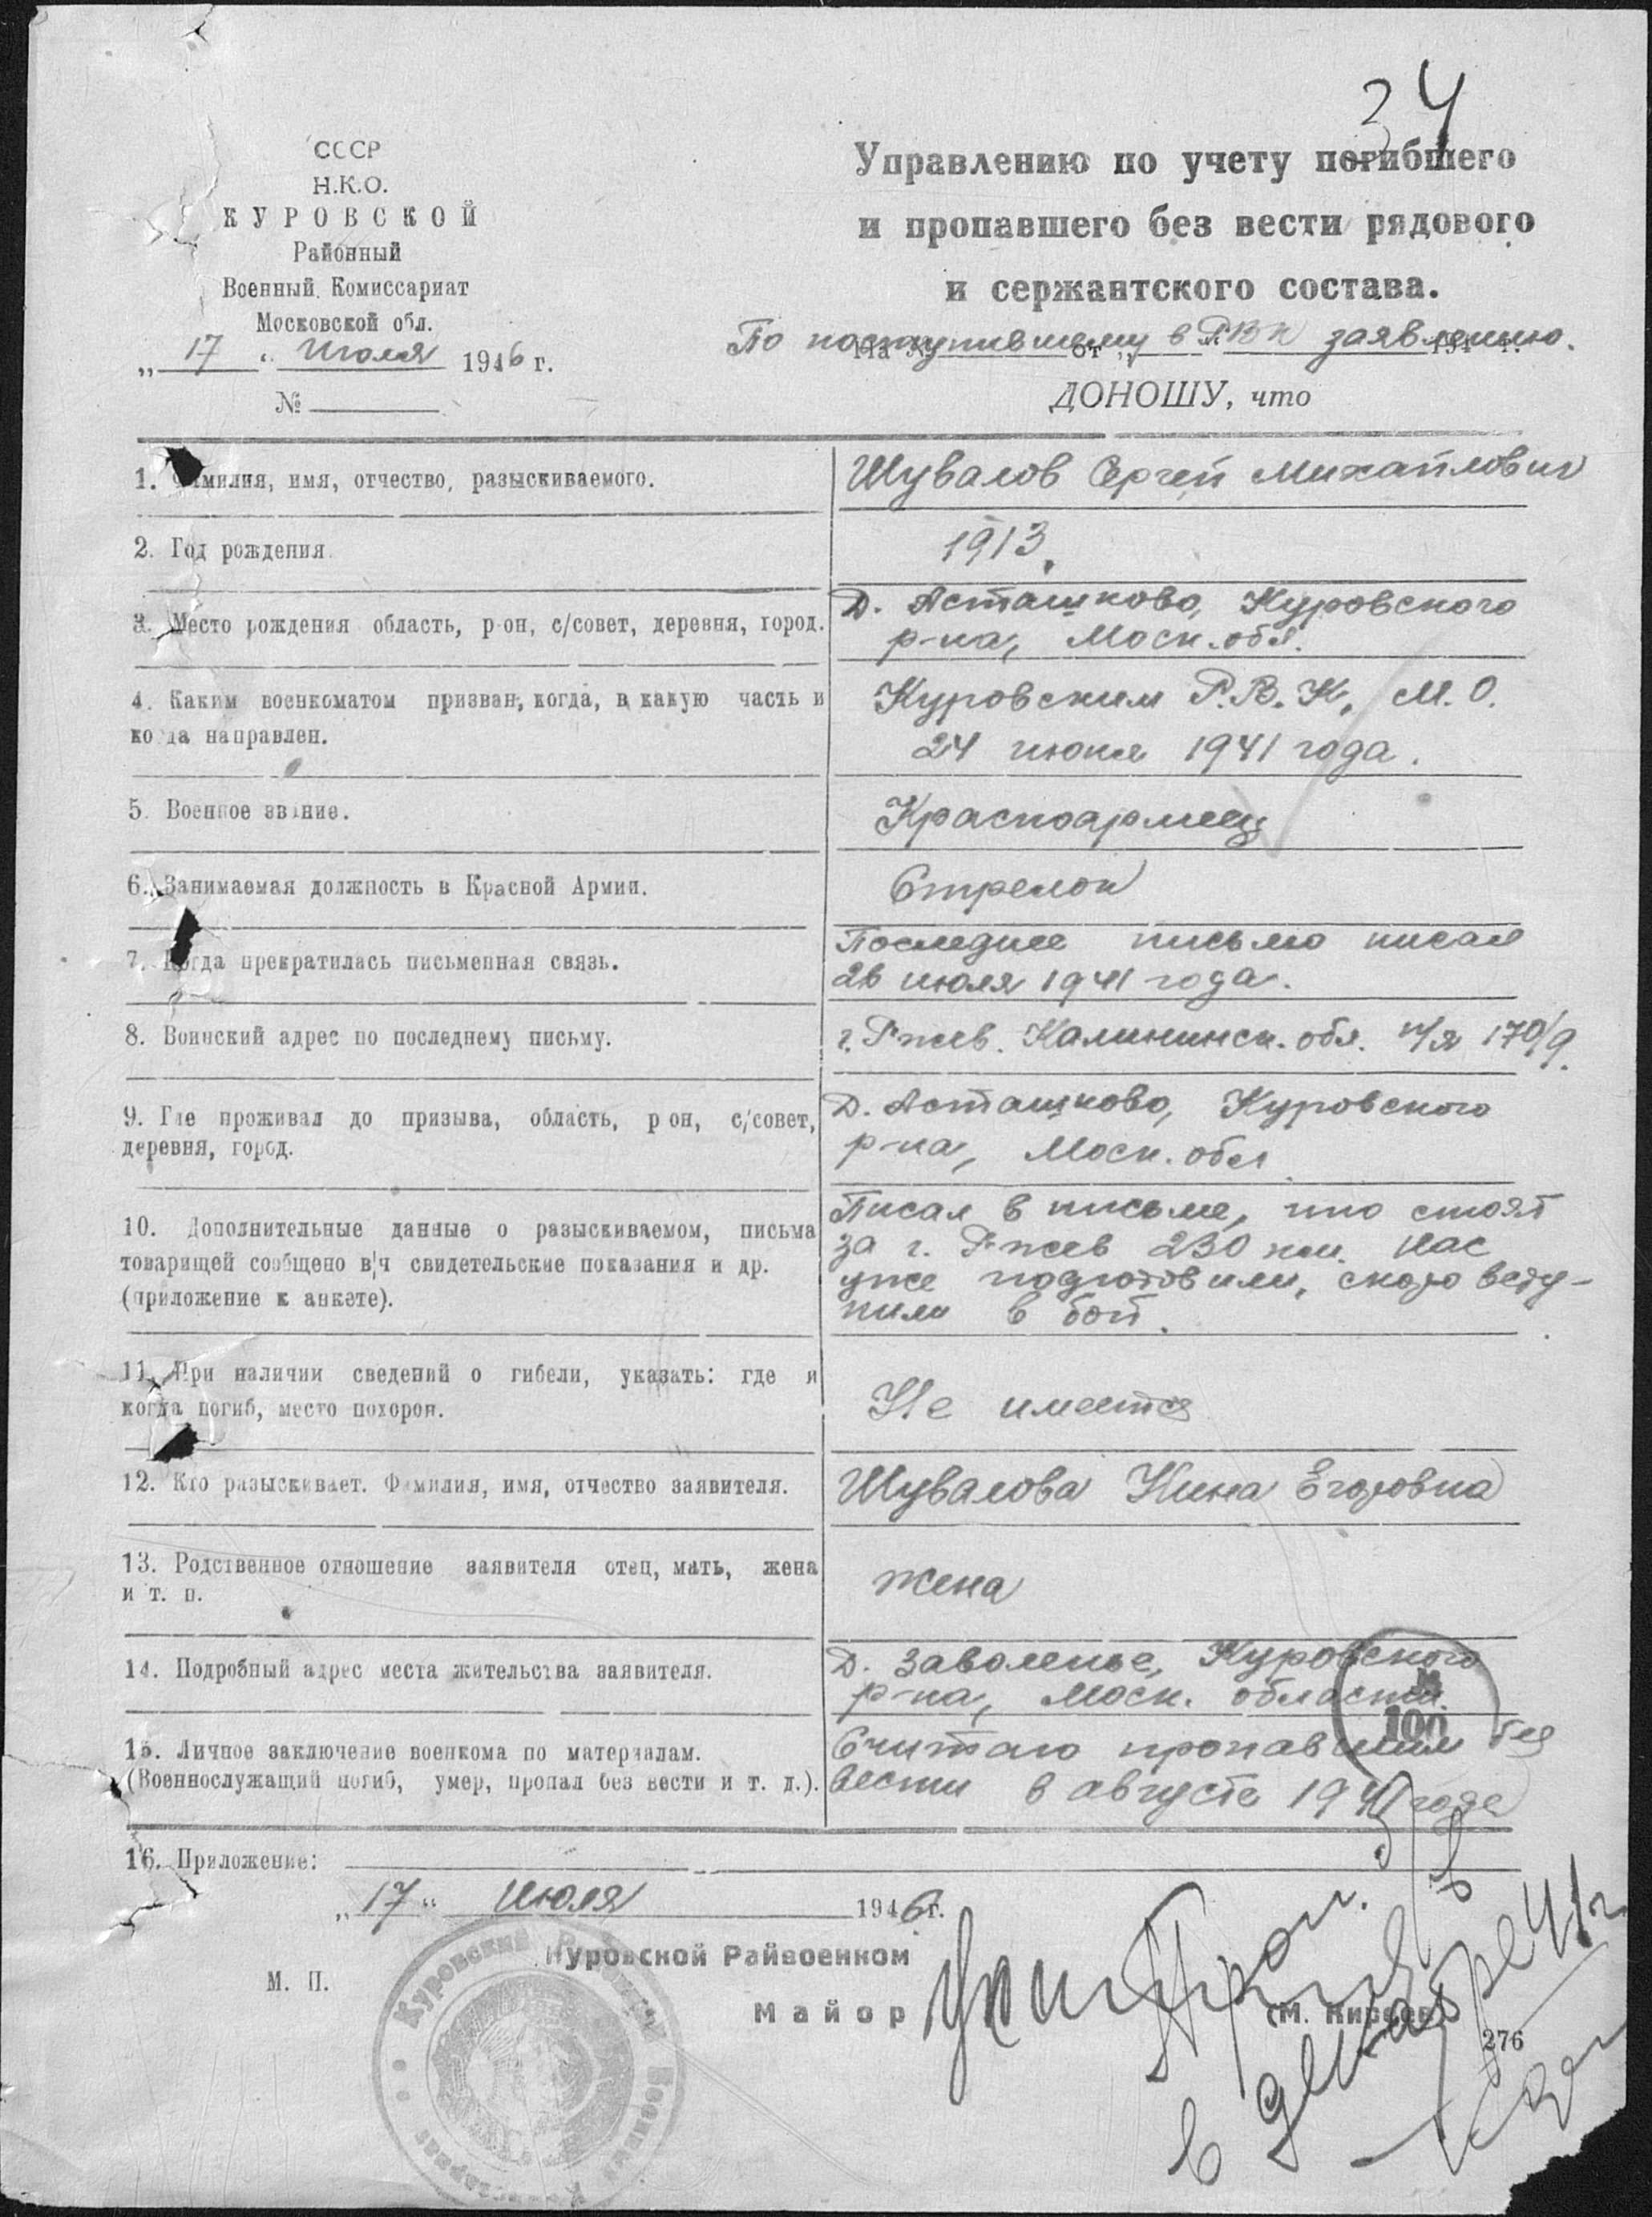 34
СССР
Н.К.О.
КУРОВСКОЙ
Районный
Военный Комиссариат
Московской обл.
„ 17 " Июля 1946 г.
№
Управлению по учету погибшего
и пропавшего без вести рядового
и сержантского состава.
По поступившему в РВК заявлению.
ДОНОШУ, что
1. Фамилия, имя, отчество, разыскиваемого.
Шувалов Сергей Михайлович
2. Год рождения
1913.
3. Место рождения область, р-он, с/совет, деревня, город.
Д. Асташково, Куровского
р-на, Моск. обл.
4. Каким военкоматом призван, когда, в какую часть и
когда направлен.
Куровским Р.В.К, М.О.
24 июня 1941 года.
5. Военное звание.
Красноармеец
6. Занимаемая должность в Красной Армии.
Стрелок
7. Когда прекратилась письменная связь.
Последнее письмо писал
26 июля 1941 года.
8. Воинский адрес по последнему письму.
г. Ржев. Калининск. обл. п/я 170/9.
9. Где проживал до призыва, область, р он, с/совет,
деревня, город.
Д. Асташково, Куровского
р-на, Моск. обл
10. Дополнительные данные о разыскиваемом, письма
товарищей сообщено в/ч свидетельские показания и др.
(приложение к анкете).
Писал в письме, что стоят
за г. Ржев 230 км. Нас
уже подготовили, скоро всту-
пили в бой.
11. При наличии сведений о гибели, указать: где и
когда погиб, место похорон.
Не имеется
12. Кто разыскивает. Фамилия, имя, отчество заявителя.
Шувалова Нина Егоровна
13. Родственное отношение заявителя отец, мать, жена
и т. п.
жена
14. Подробный адрес места жительства заявителя.
Д. Заволенье, Куровского
р-на, Моск. области.
100
15. Личное заключение военкома по материалам.
(Военнослужащий погиб, умер, пропал без вести и т. д.).
Считаю пропавшим без
вести в августе 1941 года
16. Приложение:
„ 17 " Июля 1946 г.
Куровской Райвоенком
М. П.
Майор
(М. Киреев)
276
Проп.
в декабре 41 г